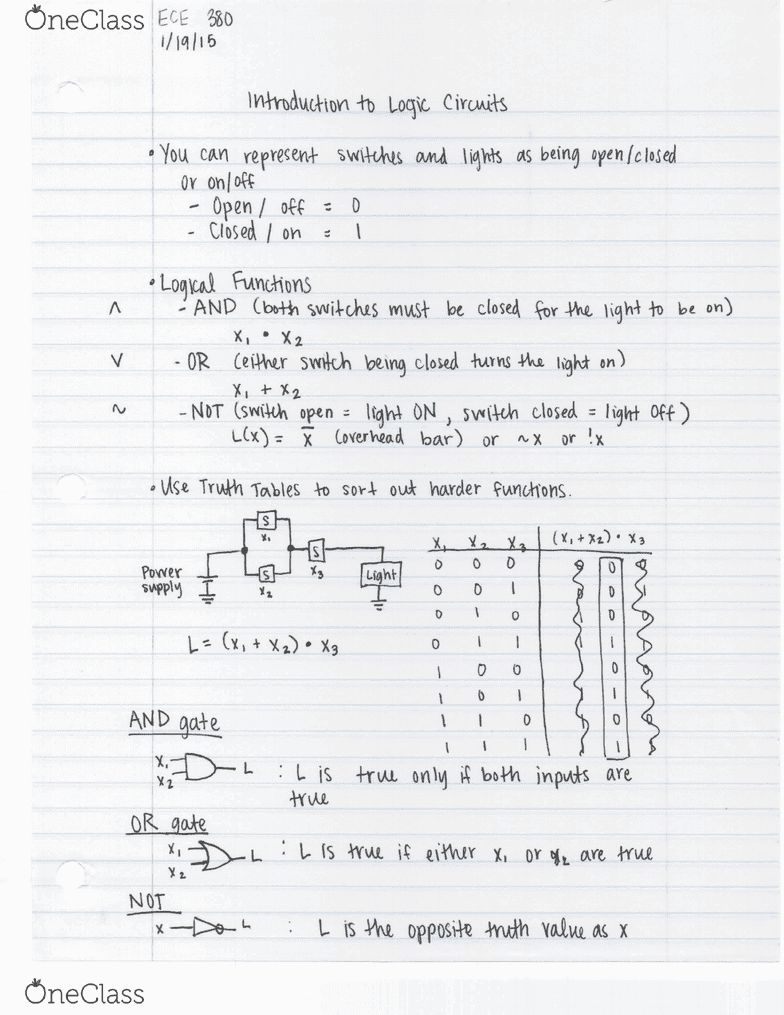 OneClass
ECE 380
1/19/15
Introduction to Logic Circuits
• You can represent switches and lights as being open/closed
or on/off
- Open / off = 0
- Closed / on = 1
• Logical Functions
∧ - AND (both switches must be closed for the light to be on)
x₁ • x₂
∨ - OR (either switch being closed turns the light on)
x₁ + x₂
~ - NOT (switch open = light ON, switch closed = light Off)
L(x) = x̅ (overhead bar) or ~x or !x
• Use Truth Tables to sort out harder functions.
S
x₁
S
x₃
S
x₂
Power
supply
Light
L = (x₁ + x₂) • x₃
x₁ x₂ x₃ (x₁ + x₂) • x₃
0 0 0 0
0 0 1 0
0 1 0 0
0 1 1 1
1 0 0 0
1 0 1 1
1 1 0 0
1 1 1 1
AND gate
x₁ x₂ L : L is true only if both inputs are
true
OR gate
x₁ x₂ L : L is true if either x₁ or x₂ are true
NOT
x L : L is the opposite truth value as x
OneClass